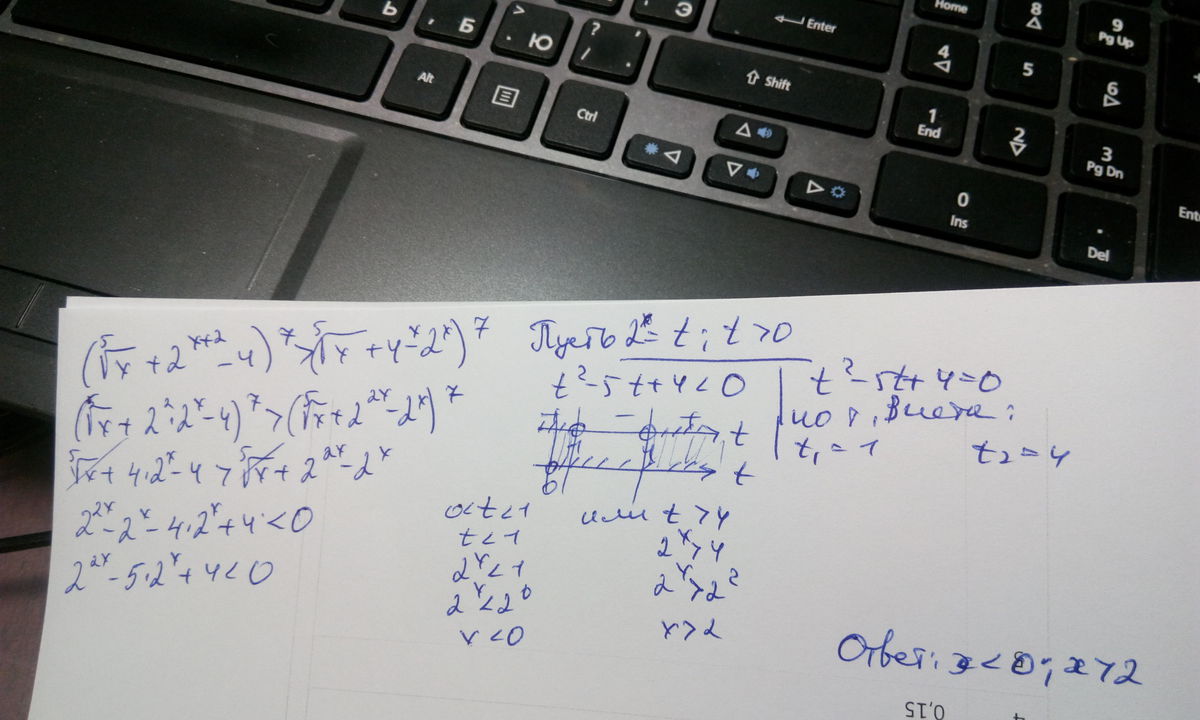 Ь
, Б
> . Ю
? / , .
Э
Enter
Home
8
9 Pg Up
Alt
Ctrl
Shift
4
5
6
1 End
2
3 Pg Dn
0 Ins
. Del
(⁵√x + 2^(x+2) - 4)^7 > (⁵√x + 4^x - 2^x)^7
(⁵√x + 2^2·2^x - 4)^7 > (⁵√x + 2^(2x) - 2^x)^7
⁵√x + 4·2^x - 4 > ⁵√x + 2^(2x) - 2^x
2^(2x) - 2^x - 4·2^x + 4 < 0
2^(2x) - 5·2^x + 4 < 0
Пусть 2^x = t; t > 0
t^2 - 5t + 4 < 0
+ - + t
0 t
t^2 - 5t + 4 = 0
по т. Виета:
t₁ = 1 t₂ = 4
0 < t < 1 или t > 4
t < 1 2^x > 4
2^x < 1 2^x > 2^2
2^x < 2^0 x > 2
x < 0
Ответ: x < 0; x > 2
0,15
4